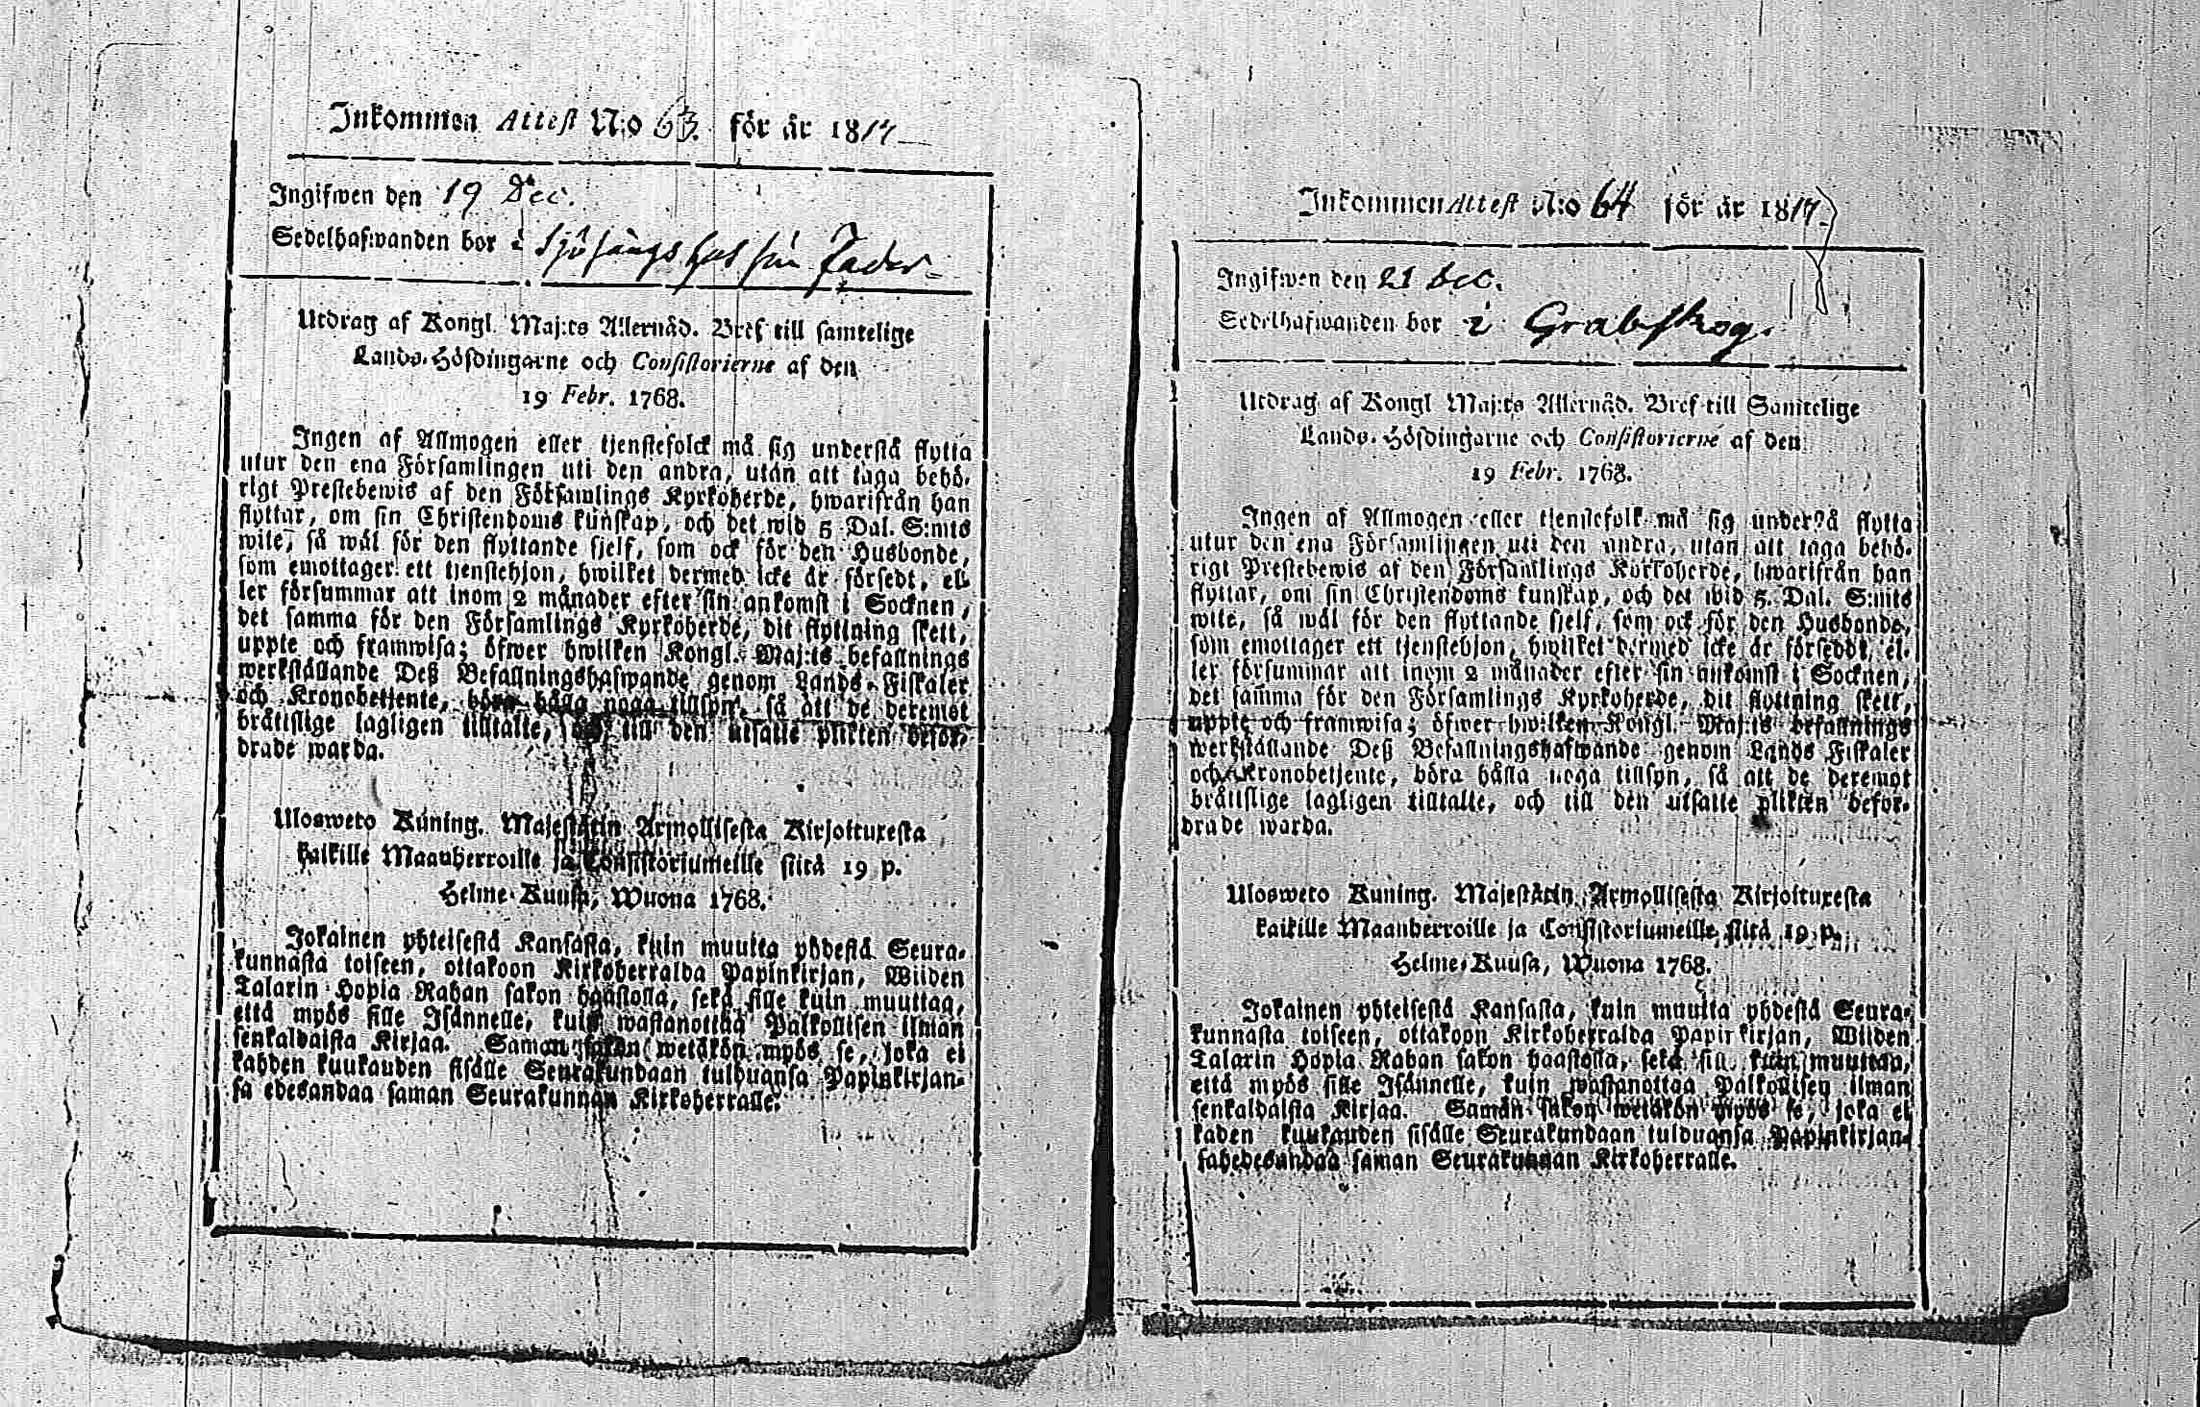 Inkommen Attest N:o 63. för år 1817
Ingifwen den 19 Dec.
Sedelhafwanden bor i hos sin Fader
Utdrag af Kongl. Maj:ts Allernåd. Bref till samtelige
Lands-Höfdingarne och Consistorierne af den
19 Febr. 1768.
Ingen af Allmogen eller tjenstefolck må sig understå flytta
utur den ena Församlingen uti den andra, utan att taga behö-
rigt Prestebewis af den Församlings Kyrkoherde, hwarifrån han
flyttar, om sin Christendoms kunskap, och det wid 5 Dal. S:mts
wite, så wäl för den flyttande sjelf, som ock för den Husbonde,
som emottager ett tjenstehjon, hwilket dermed icke är försedt, el-
ler försummar att inom 2 månader efter sin ankomst i Socknen,
det samma för den Församlings Kyrkoherde, dit flyttning skett,
uppte och framwisa; öfwer hwilken Kongl. Maj:ts befallnings
werkställande Deß Befallningshafwande genom Lands-Fiskaler
och Kronobetjente, böra hålla noga tillsyn, så att de deremot
bråttslige lagligen tilltalte, och till den utsatte plikten befor-
drade warda.
Ulosweto Kuning. Majestätin Armollisesta Kirjoituxesta
kaikille Maanherroille ja Consistoriumeille siitä 19 p.
Helme-Kuusa, Wuona 1768.
Jokainen yhteisestä Kansasta, kuin muutta yhdestä Seura-
kunnasta toiseen, ottakoon Kirkoherralda Papinkirjan, Wiiden
Talarin Hopia Rahan sakon haastolla, sekä sille kuin muuttaa,
että myös sille Isännelle, kuin wastanottaa Palkollisen ilman
senkaldaista Kirjaa. Saman sakon wetäkön myös se, joka ei
kahden kuukauden sisälle Seurakundaan tulduansa Papinkirjan-
sa edesandaa saman Seurakunnan Kirkoherralle.
Inkommen Attest N:o 64 för år 1817
Ingifwen den 21 Dec.
Sedelhafwanden bor i Grabskog.
Utdrag af Kongl Maj:ts Allernåd. Bref till Samtelige
Lands-Höfdingarne och Consistorierne af den
19 Febr. 1768.
Ingen af Allmogen eller tjenstefolk må sig understå flytta
utur den ena Församlingen uti den andra, utan att taga behö-
rigt Prestebewis af den Församlings Kyrkoherde, hwarifrån han
flyttar, om sin Christendoms kunskap, och det wid 5. Dal. S:mts
wite, så wäl för den flyttande sjelf, som ock för den Husbonde,
som emottager ett tjenstehjon, hwilket dermed icke är förseddt, el-
ler försummar att inom 2 månader efter sin ankomst i Socknen,
det samma för den Församlings Kyrkoherde, dit flyttning skett,
uppte och framwisa; öfwer hwilken Kongl. Maj:ts befallnings
werkställande Deß Befallningshafwande genom Lands Fiskaler
och Kronobetjente, böra hålla noga tillsyn, så att de deremot
bråttslige lagligen tilltalte, och till den utsatte plikten befor-
drade warda.
Ulosweto Kuning. Majestätin Armollisesta Kirjoituxesta
kaikille Maanherroille ja Consistoriumeille, siitä 19 p.
Helme-Kuusa, Wuona 1768.
Jokainen yhteisestä Kansasta, kuin muutta yhdestä Seura-
kunnasta toiseen, ottakoon Kirkoherralda Papinkirjan, Wiiden
Talarin Hopia Rahan sakon haastolla, sekä sille kuin muuttaa,
että myös sille Isännelle, kuin wastanottaa Palkollisen ilman
senkaldaista Kirjaa. Saman sakon wetäkön myös se, joka ei
kaden kuukauden sisälle Seurakundaan tulduansa Papinkirjan-
sahedesandaa saman Seurakunnan Kirkoherralle.